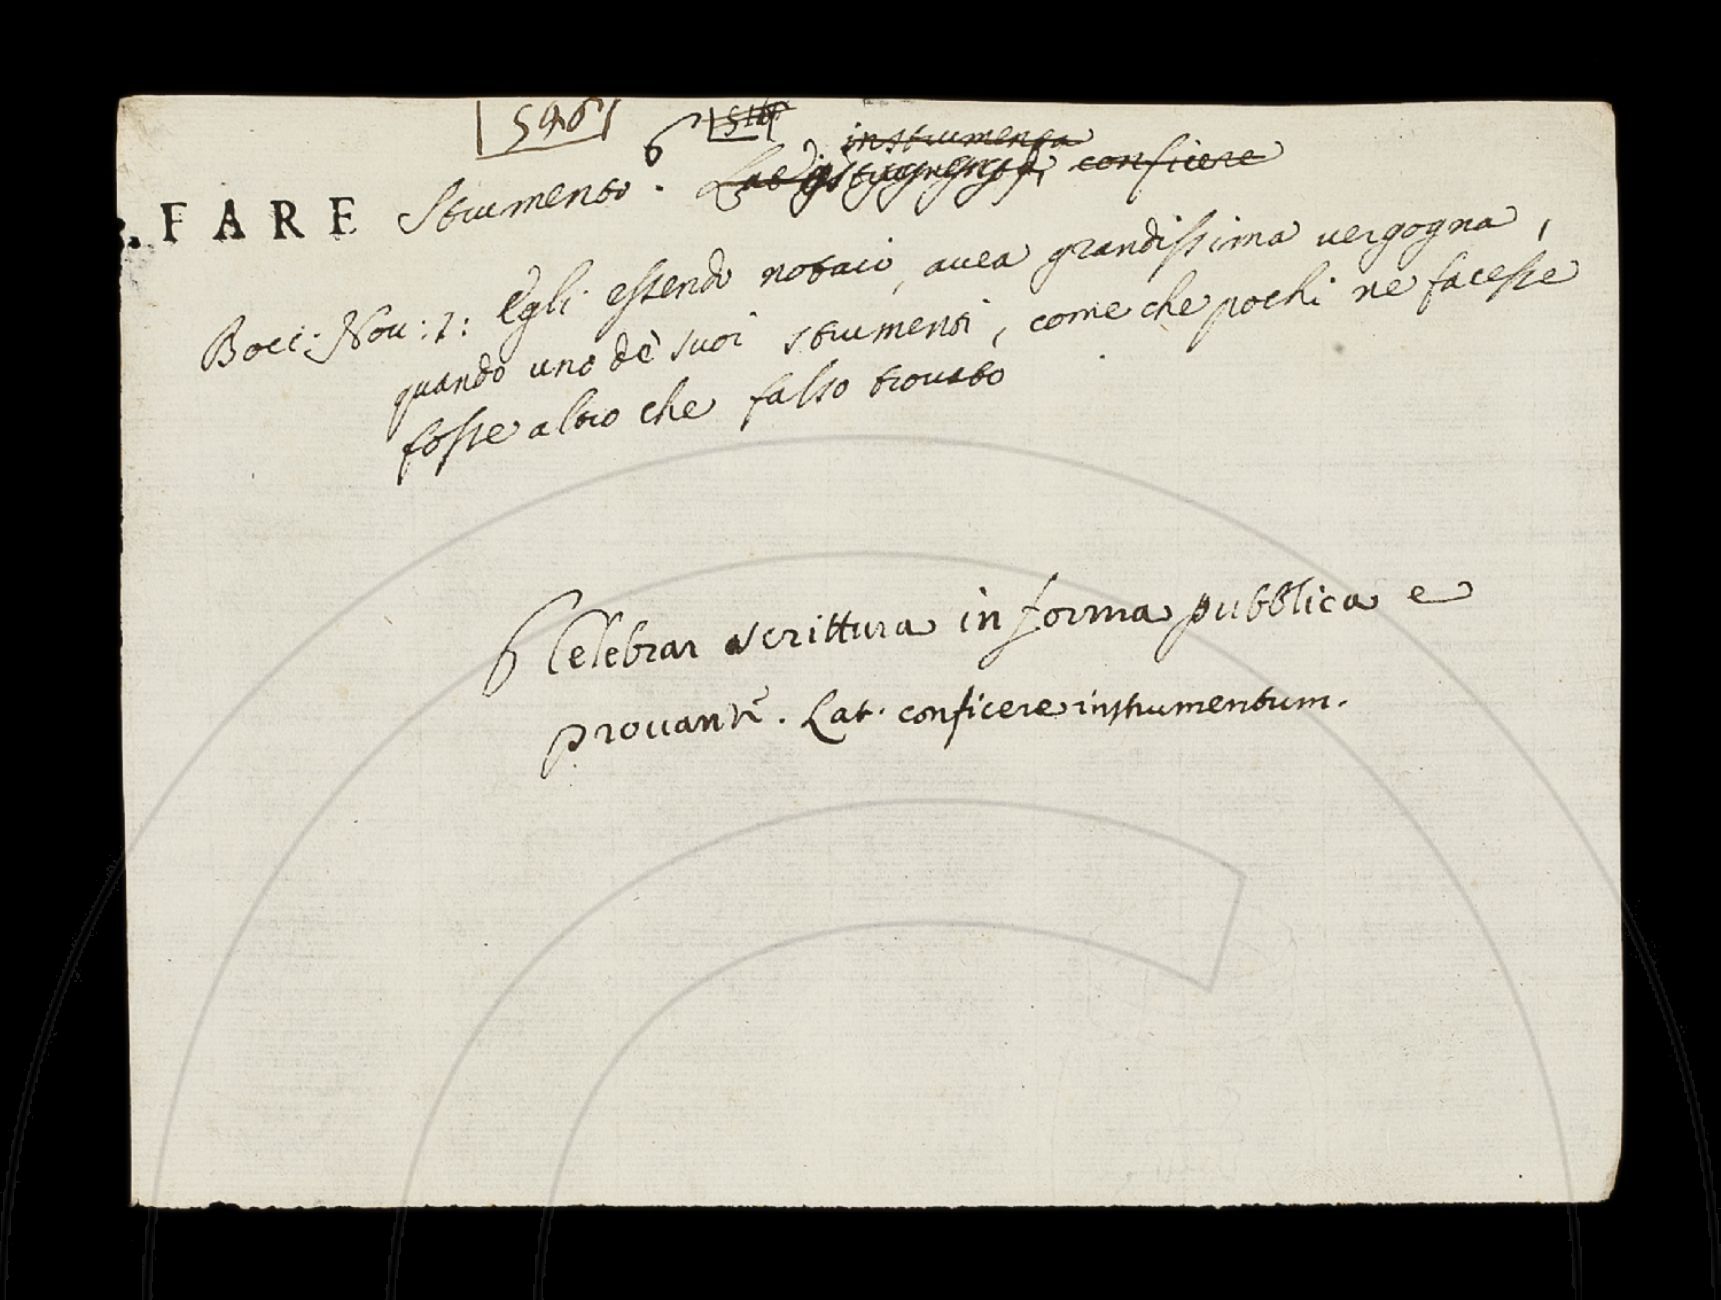 546
FARE Strumento. Lat. instrumenta conficere
Bocc: Nov: 1: Egli essendo notaio, avea grandissima uergogna,
quando uno de' suoi strumenti, come che pochi ne facesse
fosse altro che falso trouato
Celebrar scrittura in forma pubblica e
prouante. Lat. conficere instrumentum.